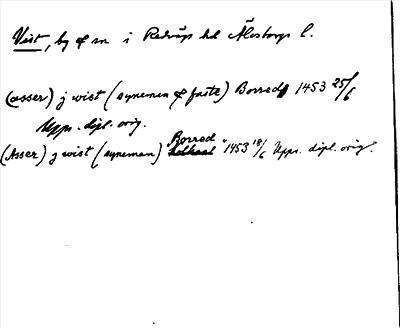 Vist, by o sn i Redvägs hd Älvsborgs l.
(asser) j wist (syneman o faste) Borred 1453 25/6
Upps. dipl. orig.
(Asser) j wist (syneman) Borred 1453 18/6 Upps. dipl. orig.